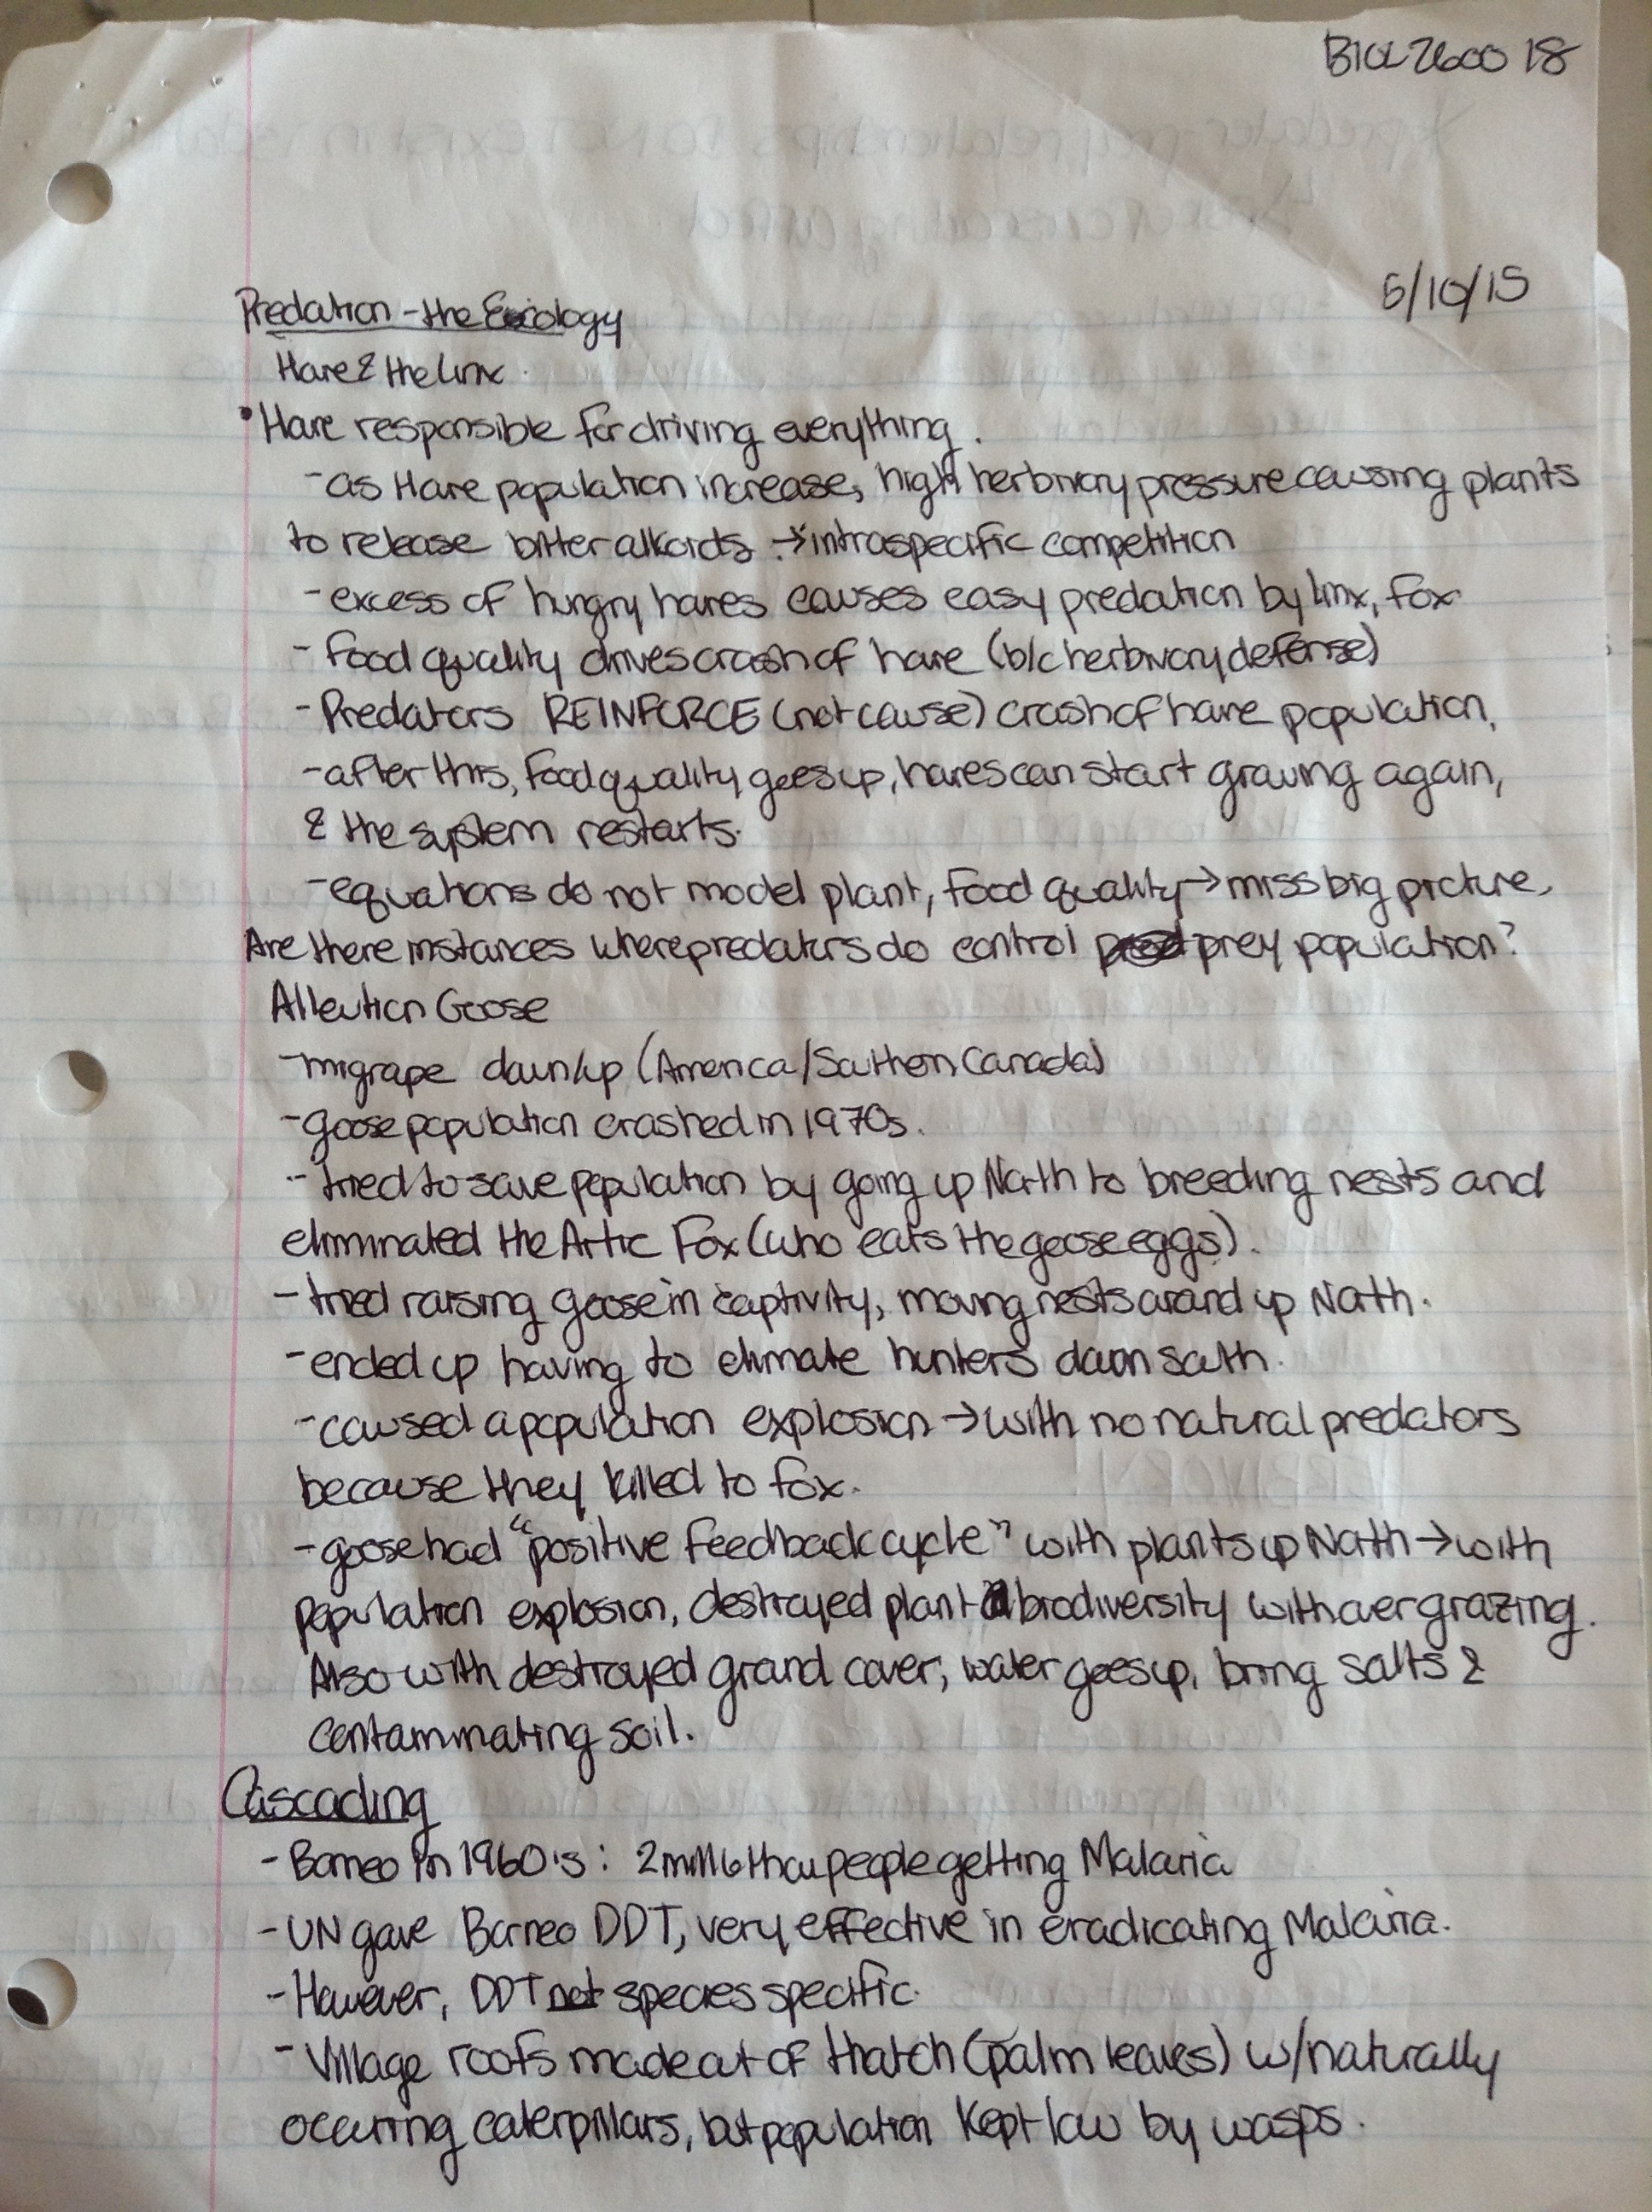 BIOL2600 18
5/10/15
Predation - the Ecology
Hare & the Linx.
• Hare responsible for driving everything.
- as Hare population increase, high herbivory pressure causing plants
to release bitter alkoids → intraspecific competition
- excess of hungry hares causes easy predation by linx, fox
- Food quality drives crash of hare (b/c herbivory defense)
- Predators REINFORCE (not cause) crash of hare population,
- after this, Food quality goes up, hares can start growing again,
& the system restarts.
- equations do not model plant, food quality → miss big picture,
Are there instances where predators do control prey population?
Alleution Goose
- migrape down/up (America/Southern Canada)
- goose population crashed in 1970s.
- tried to save population by going up North to breeding nests and
eliminated the Artic Fox (who eats the goose eggs).
- tried raising goose in captivity, moving nests around up North.
- ended up having to elimate hunters down south.
- caused a population explosion → with no natural predators
because they killed to fox.
- goose had "positive feedback cycle" with plants up North → with
population explosion, destroyed plant biodiversity with over grazing.
Also with destroyed ground cover, water goes up, bring salts &
contaminating soil.
Cascading
- Borneo in 1960's: 2 mill 6 thou people getting Malaria
- UN gave Borneo DDT, very effective in eradicating Malaria.
- However, DDT not species specific.
- Village roofs made out of thatch (palm leaves) w/naturally
occuring caterpillars, but population kept low by wasps.